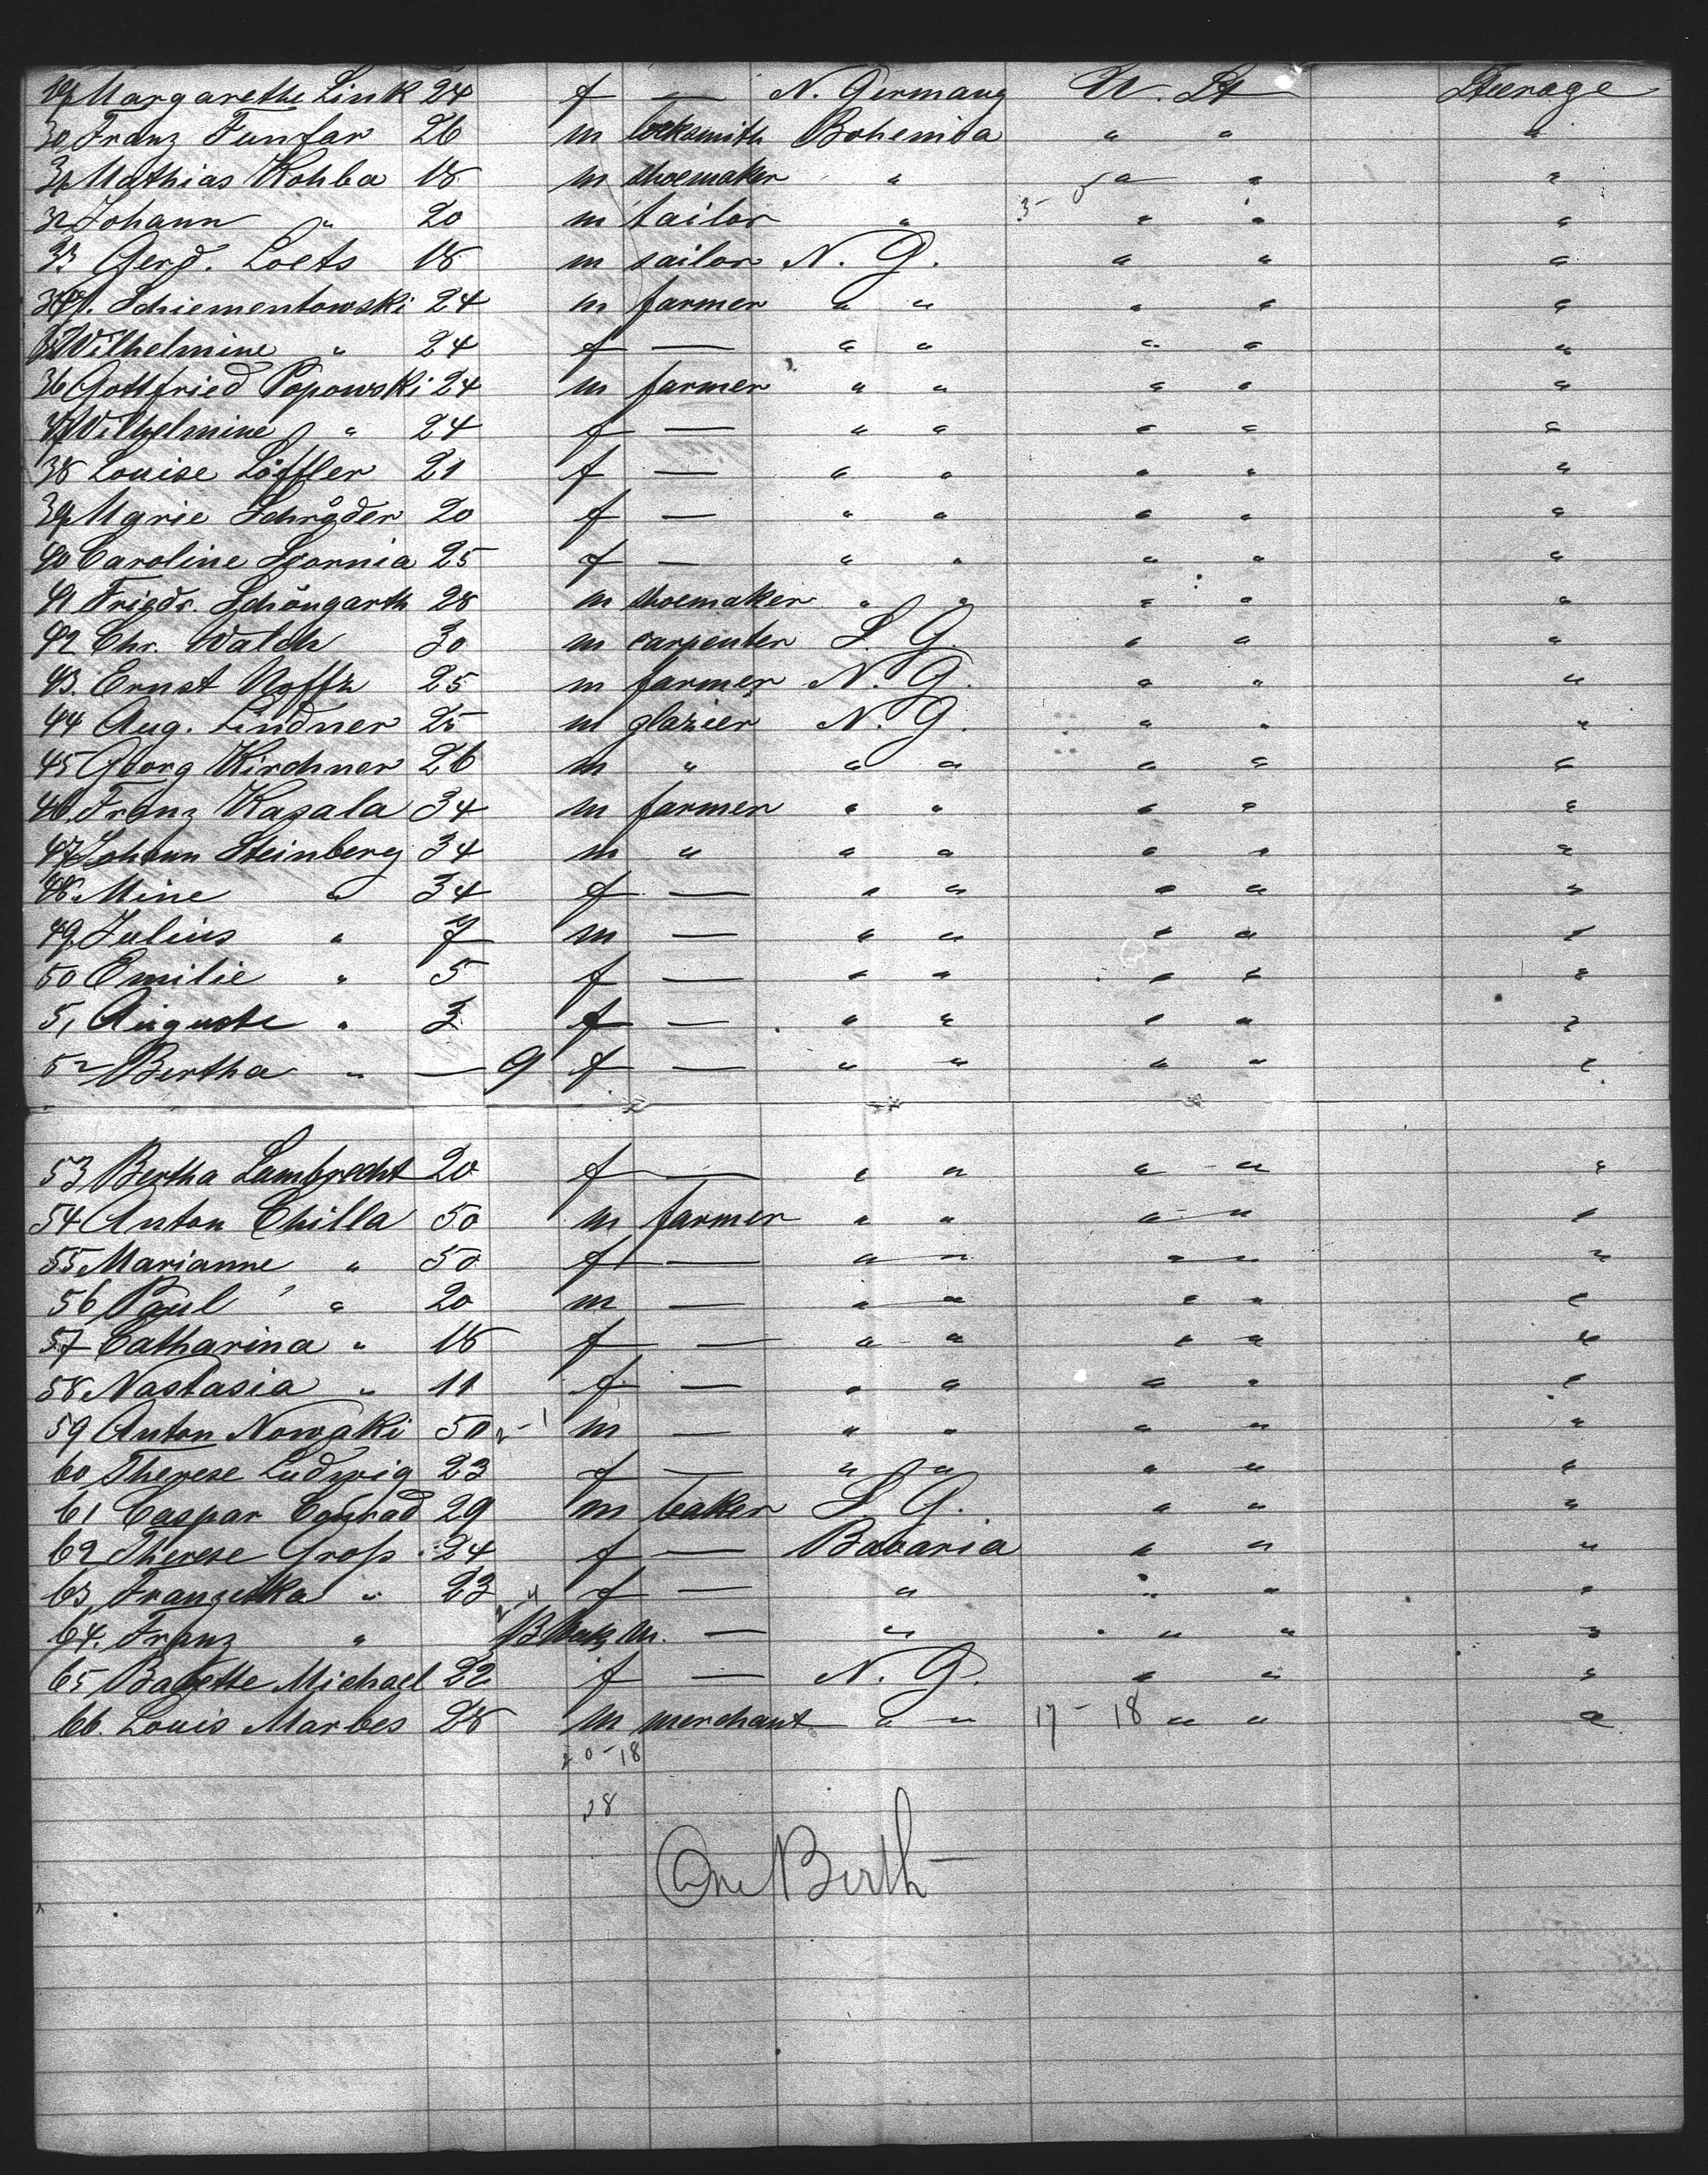 29 Margarethe Link 24 f — N. Germany U. St Steerage
30 Franz Funfar 26 m locksmith Bohemia " " "
31 Mathias Kohba 18 m shoemaker " " " "
32 Johann " 20 m tailor " 3- " " "
33 Gerd. Loets 18 m sailor N. G. " " "
34 Schiementowski 24 m farmer " " " " "
35 Wilhelmine " 24 f — " " " " "
36 Gottfried Popowski 24 m farmer " " " " "
37 Wilhelmine " 24 f — " " " " "
38 Louise Löffler 21 f — " " " " "
39 Marie Schröder 20 f — " " " " "
40 Caroline 25 f — " " " " "
41 Friedr. Schöngarth 28 m shoemaker " " " " "
42 Chr. Walch 30 m carpenter S. G. " " "
43. Ernst Noffz 25 m farmer N. G. " " "
44 Aug. Lindner 25 m glazier N. G. " " "
45 Georg Kirchner 26 m " " " " " "
46. Franz Kasala 34 m farmer " " " " "
47 Johann Steinberg 34 m " " " " " "
48. Mine " 34 f — " " " " "
49. Julius " 7 m — " " " " "
50 Emilie " 5 f — " " " " "
51 Auguste " 3 f — " " " " "
52 Bertha " — 9 f — " " " " "
53 Bertha Lambrecht 20 f — " " " " "
54 Anton Chilla 50 m farmer " " " " "
55 Marianne " 50 f — " " " " "
56 Paul " 20 m — " " " " "
57 Catharina " 18 f — " " " " "
58. Nastasia " 11 f — " " " " "
59 Anton Nowaki 50 2-1 m — " " " " "
60 Therese Ludwig 23 f — " " " " "
61 Caspar Conrad 29 m baker S. G. " " "
62 Therese Groß 24 f — Bavaria " " "
63 Franziska " 23 f — " " " "
64. Franz " m. — " " " "
65 Babette Michael 22 f — N. G. " " "
66. Louis Marbes 28 m merchant " " 17-18 " " "
20-18
38
One Birth —